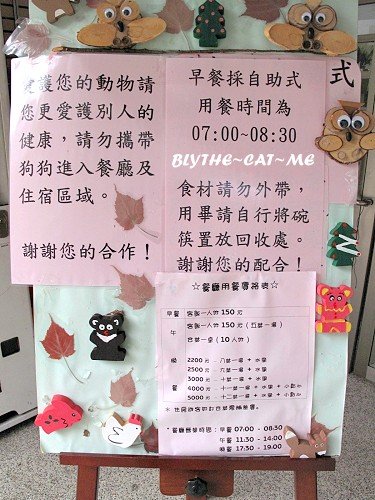 愛護您的動物請
您更愛護別人的
健康，請勿攜帶
狗狗進入餐廳及
住宿區域。
謝謝您的合作！
式
早餐採自助式
用餐時間為
07:00~08:30
BLYTHE~CAT~ME
食材請勿外帶，
用畢請自行將碗
筷置放回收處。
謝謝您的配合！
☆餐廳用餐價格表☆
早餐 客飯一人份 150 元
午 客飯一人份 150 元 (五菜一湯)
合菜一桌 (10 人份)
晚 2200 元 - 八菜一湯 + 水果
2500 元 - 十菜一湯 + 水果
3000 元 - 十菜一湯 + 水果
餐 4000 元 - 十一菜一湯 + 水果 + 小點心
5000 元 - 十二菜一湯 + 水果 + 小點心
早餐 07:00 - 08:30
午餐 11:30 - 14:00
晚餐 17:30 - 19:00